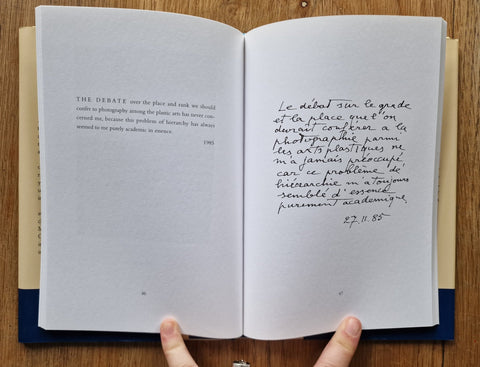 THE DEBATE over the place and rank we should
confer to photography among the plastic arts has never con-
cerned me, because this problem of hierarchy has always
seemed to me purely academic in essence.
1985
Le débat sur le grade
et la place que l'on
devrait conférer à la
photographie parmi
les arts plastiques ne
m'a jamais préoccupé
car ce problème de
hiérarchie m'a toujours
semblé d'essence
purement académique.
27.11.85